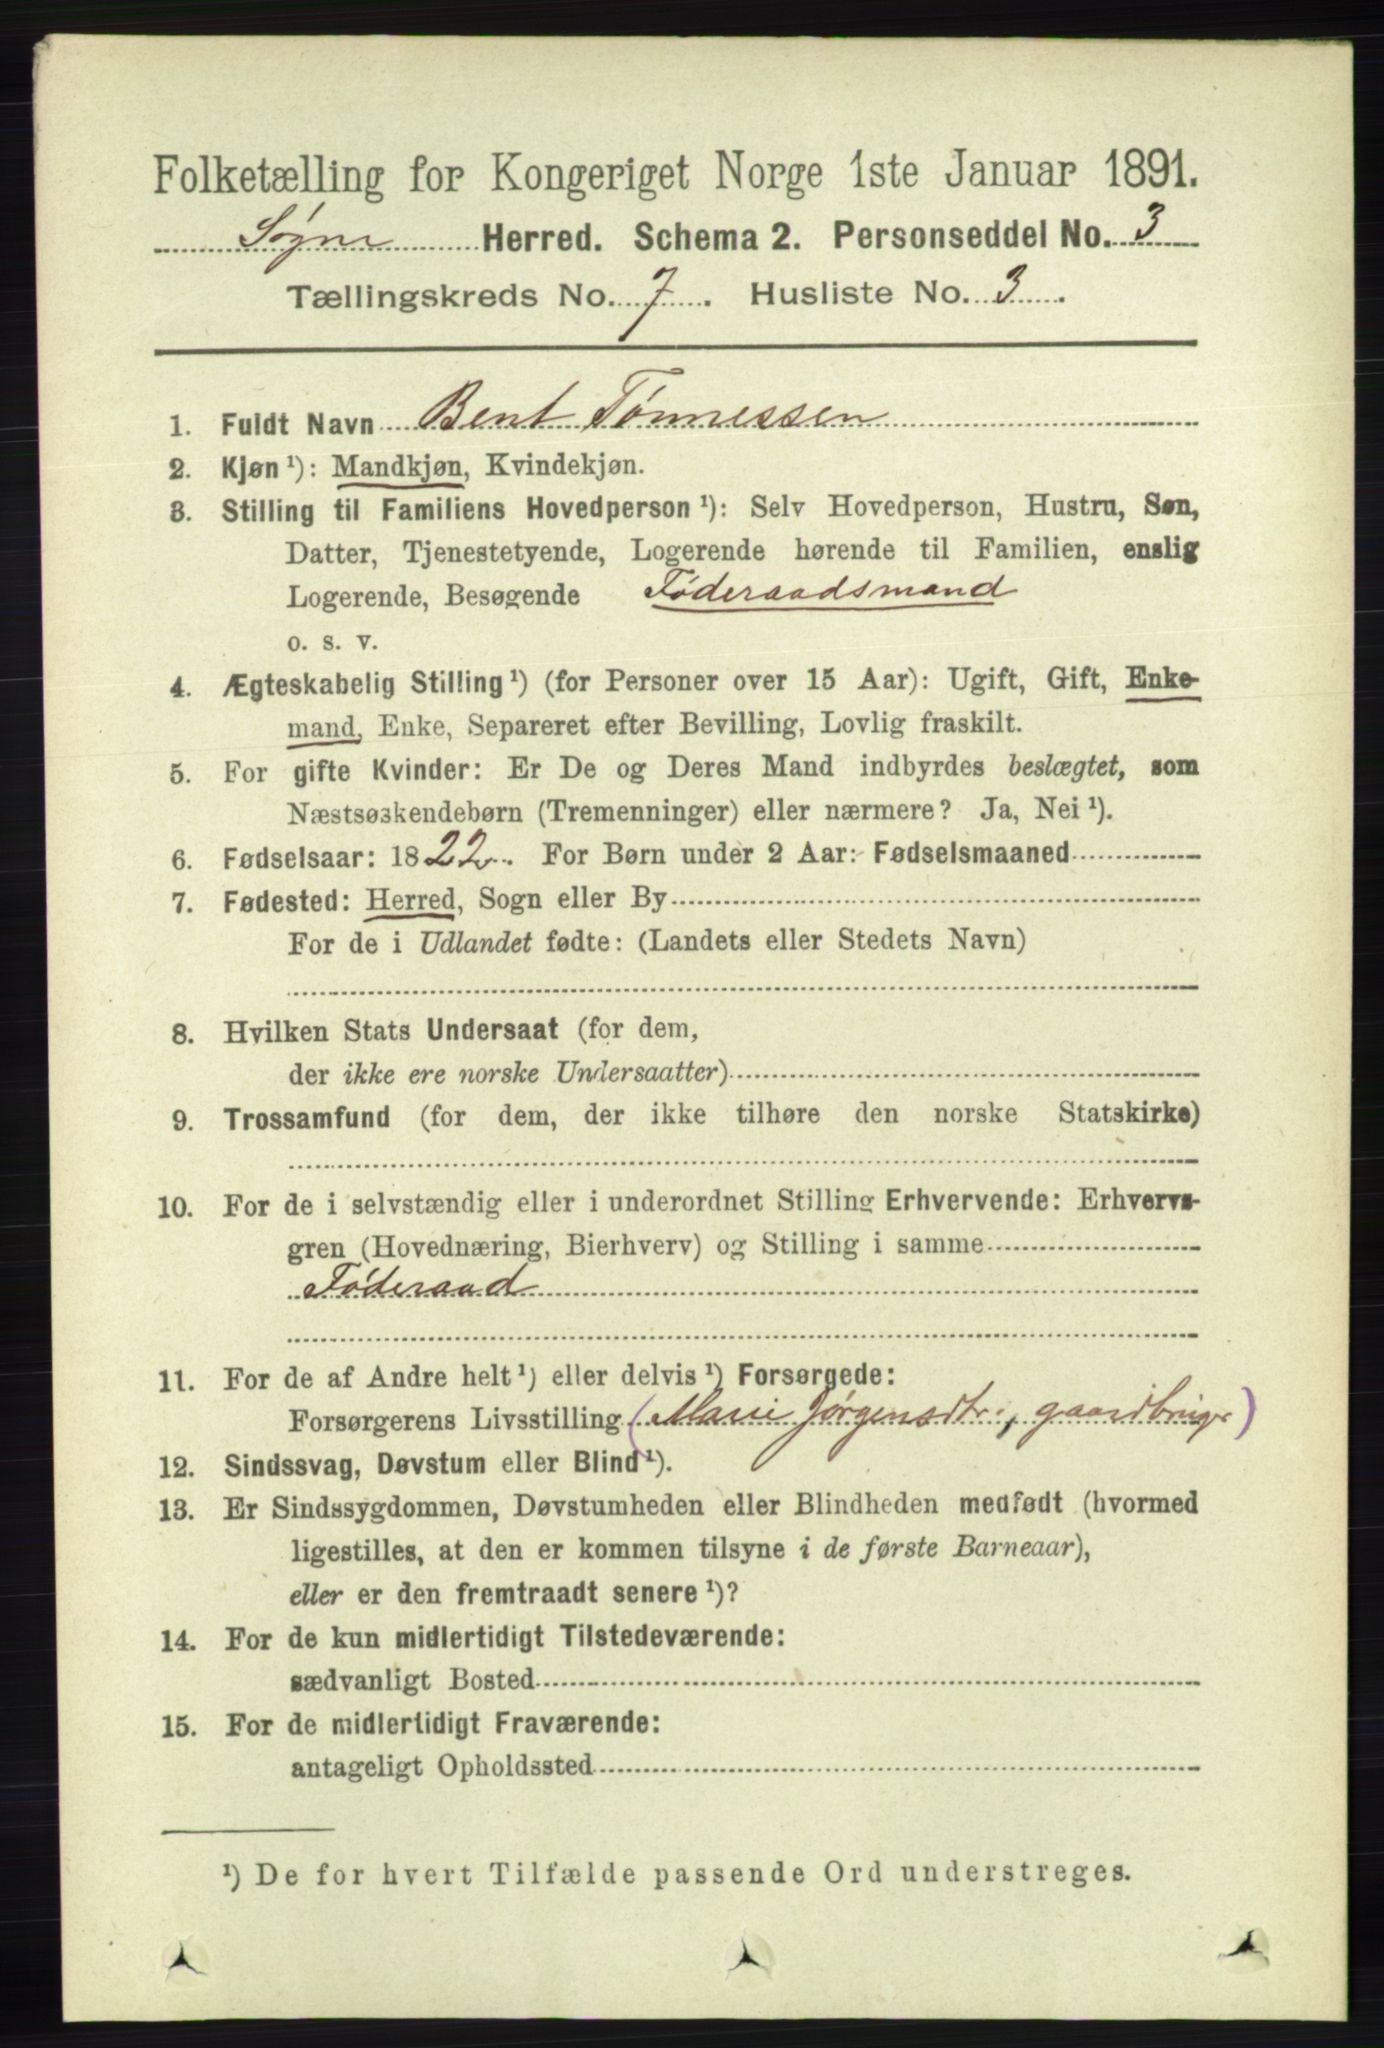 Folketælling for Kongeriget Norge 1ste Januar 1891.
Søgne Herred. Schema 2. Personseddel No. 3
Tællingskreds No. 7. Husliste No. 3.
1. Fuldt Navn Bent Tønnessen
2. Kjøn ¹): Mandkjøn, Kvindekjøn.
3. Stilling til Familiens Hovedperson ¹): Selv Hovedperson, Hustru, Søn,
Datter, Tjenestetyende, Logerende hørende til Familien, enslig
Logerende, Besøgende Føderaadsmand
o. s. v.
4. Ægteskabelig Stilling ¹) (for Personer over 15 Aar): Ugift, Gift, Enke-
mand, Enke, Separeret efter Bevilling, Lovlig fraskilt.
5. For gifte Kvinder: Er De og Deres Mand indbyrdes beslægtet, som
Næstsøskendebørn (Tremenninger) eller nærmere? Ja, Nei ¹).
6. Fødselsaar: 1822. For Børn under 2 Aar: Fødselsmaaned
7. Fødested: Herred, Sogn eller By
For de i Udlandet fødte: (Landets eller Stedets Navn)
8. Hvilken Stats Undersaat (for dem,
der ikke ere norske Undersaatter)
9. Trossamfund (for dem, der ikke tilhøre den norske Statskirke)
10. For de i selvstændig eller i underordnet Stilling Erhvervende: Erhvervs-
gren (Hovednæring, Bierhverv) og Stilling i samme
Føderaad
11. For de af Andre helt ¹) eller delvis ¹) Forsørgede:
Forsørgerens Livsstilling (Marie Jørgensdtr., gaardbruger)
12. Sindssvag, Døvstum eller Blind ¹).
13. Er Sindssygdommen, Døvstumheden eller Blindheden medfødt (hvormed
ligestilles, at den er kommen tilsyne i de første Barneaar),
eller er den fremtraadt senere ¹)?
14. For de kun midlertidigt Tilstedeværende:
sædvanligt Bosted
15. For de midlertidigt Fraværende:
antageligt Opholdssted
¹) De for hvert Tilfælde passende Ord understreges.